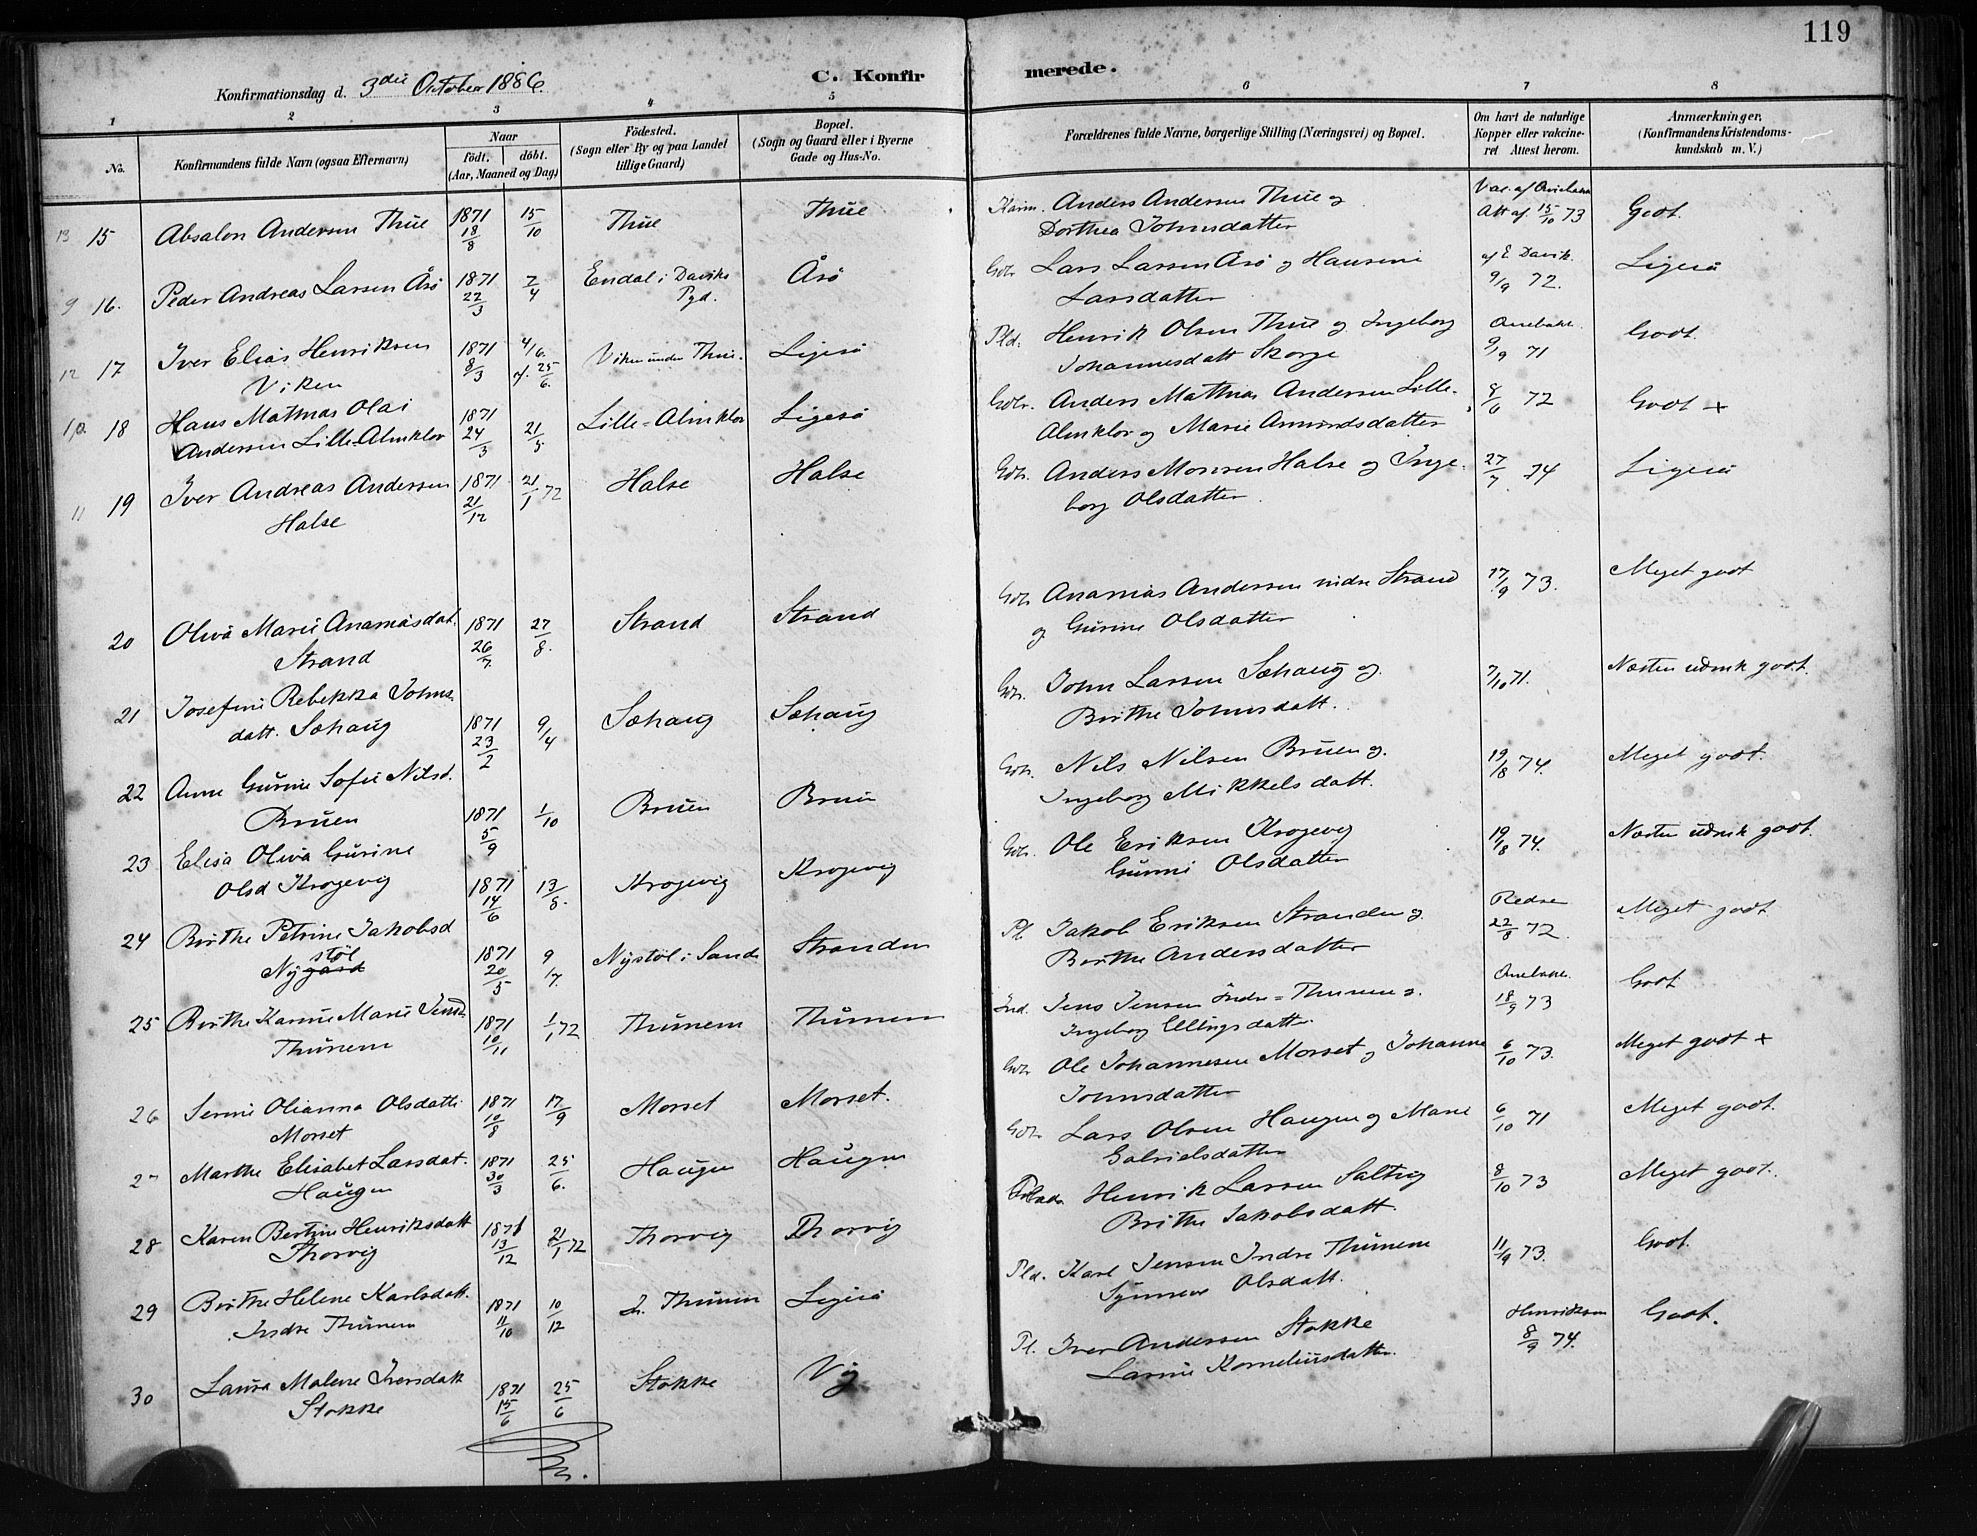 119
Konfirmationsdag d. 3die October 1886.
C. Konfirmerede.
1 2 3 4 5 6 7 8
No.
Konfirmandens fulde Navn (ogsaa Efternavn)
Naar
födt. döbt.
(Aar, Maaned og Dag)
Födested.
(Sogn eller By og paa Landet
tillige Gaard)
Bopæl.
(Sogn og Gaard eller i Byerne
Gade og Hus-No.
Forældrenes fulde Navne, borgerlige Stilling (Næringsvei) og Bopæl.
Om havt de naturlige
Kopper eller vakcine-
ret Attest herom.
Anmærkninger.
(Konfirmandens Kristendoms-
kundskab m. V.)
13 15 Absalon Andersen Thue 1871 18/8 15/10 Thue Thue Anders Andersen Thue og
Dorthea Johnsdatter Att af 15/10 73 Godt.
9 16. Peder Andreas Larsen Årö 1871 22/3 2/4 Endal i Daviks
Pgd. Årö Gbr. Lars Larsen Årö og Hansine
Larsdatter af E. Davik. 9/9 72. Ligeså
12 17 Iver Elias Henriksen
Viken 1871 8/3 4/6. 25/6. Viken under Thue. Ligeså Pld. Henrik Olsen Thue og Ingeborg
Johannesdatt Skorge 9/9 71 Godt.
10. 18 Hans Mathias Olai
Andersen Lille-Almklov 1871 24/3 21/5 Lille-Almklov Ligeså Gbr. Anders Mathias Andersen Lille-
Almklov og Marie Amundsdatter 8/6 72 Godt +
11 19 Iver Andreas Andersen
Halse 1871 21/12 21/1 72 Halse Halse Gbr. Anders Monsen Halse og Inge-
borg Olsdatter 27/7 74 Ligeså
20 Oliva Marie Ananiasdat.
Strand 1871 26/7. 27/8. Strand Strand Gbr Ananias Andersen nidre Strand
og Gurine Olsdatter 17/9 73. Meget godt
21 Josefine Rebekka Johns-
datt. Sæhaug 1871 23/2 9/4 Sæhaug Sæhaug Gbr. John Larsen Sæhaug og
Birthe Johnsdatt. 7/10 71. Næsten udmk godt.
22 Anne Gurine Sofie Nilsd.
Bruen 1871 5/9 1/10 Bruen Bruen Gbr. Nils Nilsen Bruen og
Ingeborg Mikkelsdatt. 19/8 74. Meget godt.
23 Elisa Oliva Gurine
Olsd Krogevig 1871 14/6 13/8. Krogevig Krogevig Gbr. Ole Eriksen Krogevig
Gunni Olsdatter 19/8 74. Næsten udmk godt.
24 Birthe Petrine Jakobsd
Nygård støl 1871 20/5 9/7. Nystøl i Sande Stranden Pl Jakob Eriksen Stranden og
Berthe Andersdatter 22/8 72. Meget godt
25 Birthe Karine Marie Jensd.
Thunem 1871 10/11 1/1 72 Thunem Thunem Ind. Jens Jensen Indre-Thunem og
Ingeborg Ellingsdatter 18/9 73 Godt
26 Serine Olianna Olsdatter
Morset 1871 10/8 17/9 Morset Morset. Gbr Ole Johannesen Morset og Johanne
Johnsdatter 6/10 73. Meget godt +
27 Marthe Elisabet Larsdat.
Haugen 1871 30/3 25/6. Haugen Haugen Gbr. Lars Olsen Haugen og Marie
Gabrielsdatter 6/10 71 Meget godt.
28 Karen Bertine Henriksdatt
Thorvig 1871 13/12 21/1 72 Thorvig Thorvig Henrik Larsen Saltvig
Brithe Jakobsdatt. 8/10 73 Meget godt.
29 Birthe Helene Karlsdatt.
Indre Thunem 1871 11/10 10/12 I. Thunem Ligeså Pld. Karl Jensen Indre Thunem
Synneve Olsdatt. 11/9 73. Godt.
30 Laura Malene Iversdatt
Stokke 1871 15/6 25/6 Stokke Vig Pl. Iver Andersen Stokke
Larine Korneliusdatter. Henriksen 8/9 74. Godt.